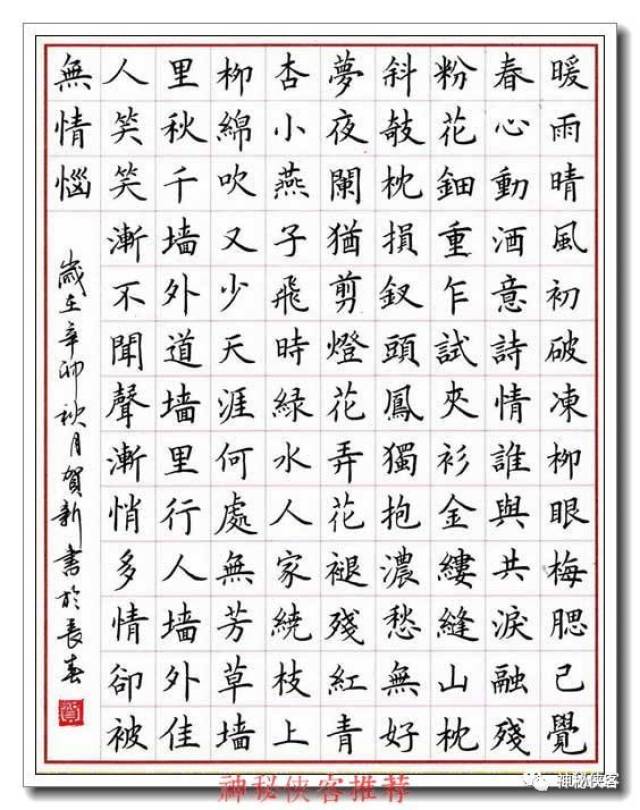 暖雨晴風初破凍柳眼梅腮已覺
春心動酒意詩情誰與共淚融殘
粉花鈿重乍試夾衫金縷縫山枕
斜攲枕損釵頭鳳獨抱濃愁無好
夢夜闌猶剪燈花弄花褪殘紅青
杏小燕子飛時綠水人家繞枝上
柳綿吹又少天涯何處無芳草墙
里秋千墙外道墙里行人墙外佳
人笑笑漸不聞聲漸悄多情卻被
無情惱
歲在辛卯秋月賀新書於長春
賀
神秘侠客推荐
神秘侠客